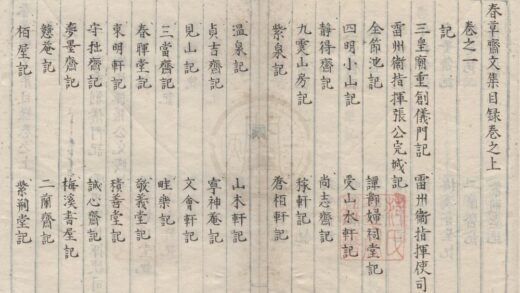 春草齋文集目錄卷之上
卷之一
記
三皇廟重創儀門記 雷州衛指揮使司
雷州衛指揮張公完城記
全節池記 譚節婦祠堂記
四明小山記 愛山水軒記
靜得齋記 尚志齋記
九霙山房記 稼軒記
紫泉記 蒼栢軒記
溫泉記 山木軒記
貞吉齋記 寧神庵記
見山記 文會軒記
三當齋記 畦樂記
春暉堂記 敬義堂記
東明軒記 積善堂記
守拙齋記 誠心齋記
夢墨齋記 梅溪書屋記
慧庵記 二蘭齋記
栢屋記 紫荊堂記